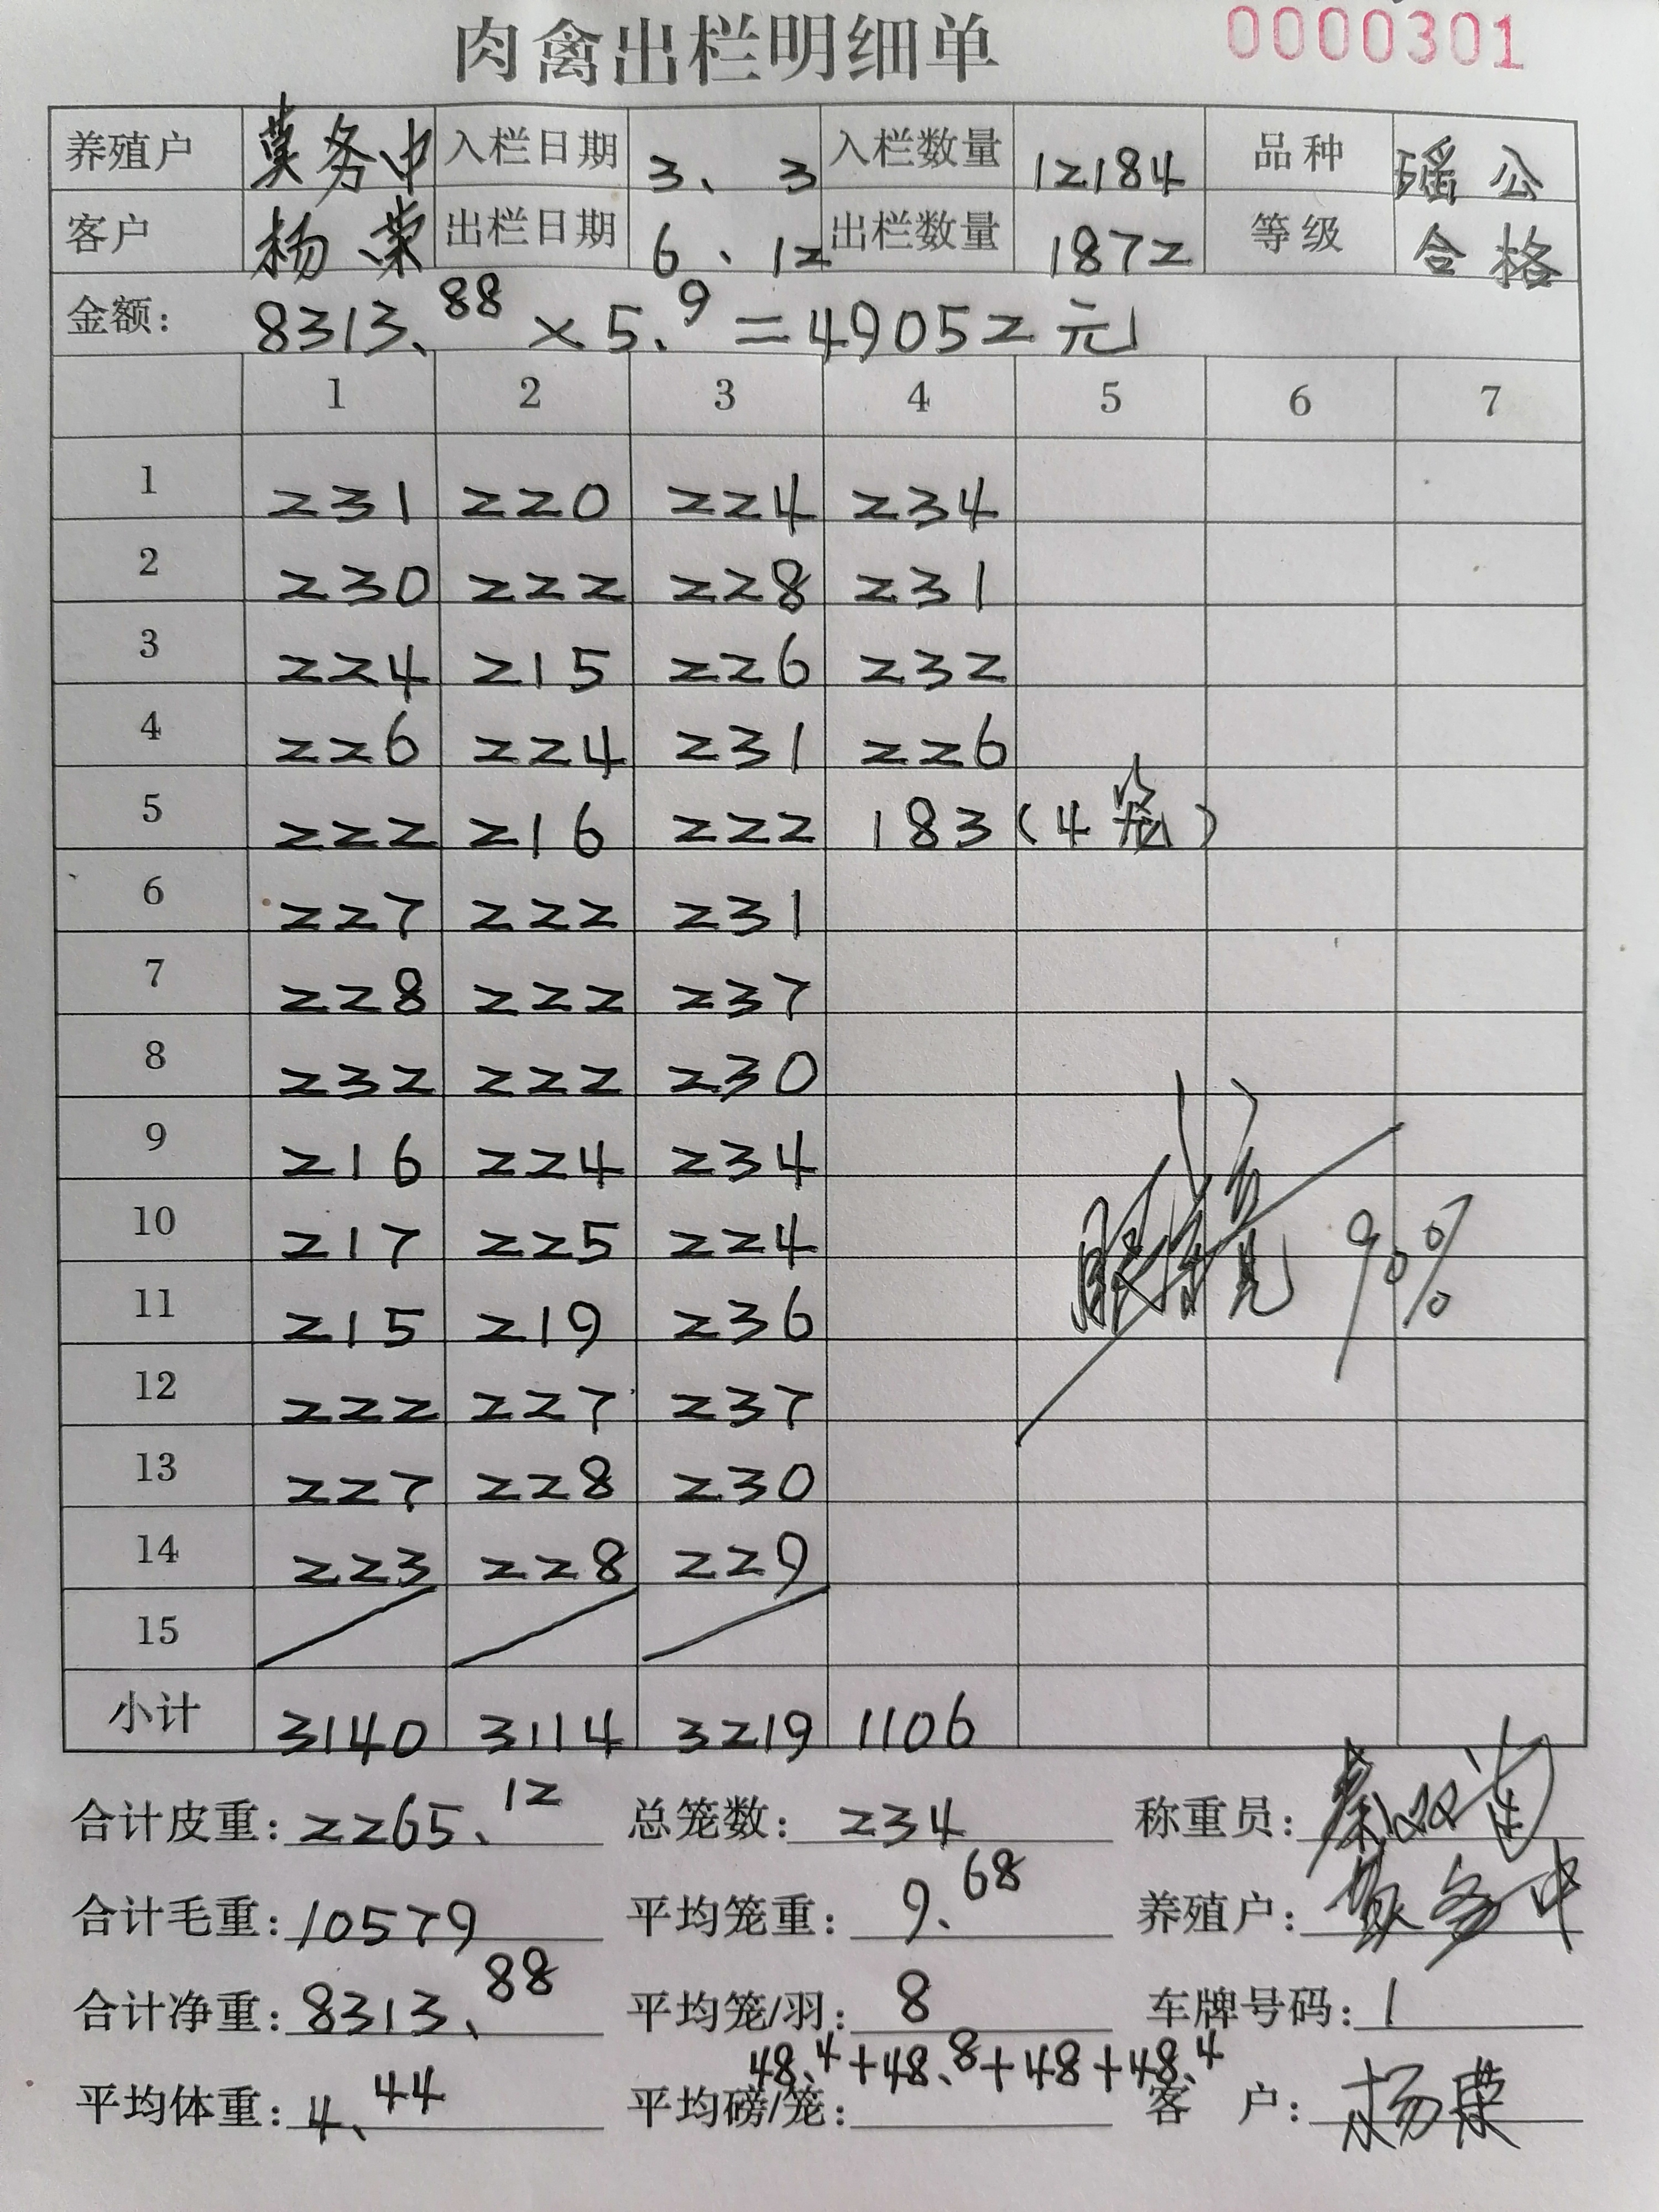 肉禽出栏明细单 0000301
养殖户 莫务中 入栏日期 3、3 入栏数量 12184 品种 瑶公
客户 杨荣 出栏日期 6、12 出栏数量 1872 等级 合格
金额: 8313.88 × 5.9 = 49052元
1 2 3 4 5 6 7
1 231 220 224 234
2 230 222 228 231
3 224 215 226 232
4 226 224 231 226
5 222 216 222 183(4笼)
6 227 222 231
7 228 222 237
8 232 222 230
9 216 224 234
10 217 225 224
11 215 219 236
12 222 227 237
13 227 228 230
14 223 228 229
15
小计 3140 3114 3219 1106
90%
合计皮重: 2265.12 总笼数: 234 称重员:
合计毛重: 10579 平均笼重: 9.68 养殖户: 莫务中
合计净重: 8313.88 平均笼/羽: 8 车牌号码: 1
48.4+48.8+48+48.4
平均体重: 4.44 平均磅/笼: 客 户: 杨荣